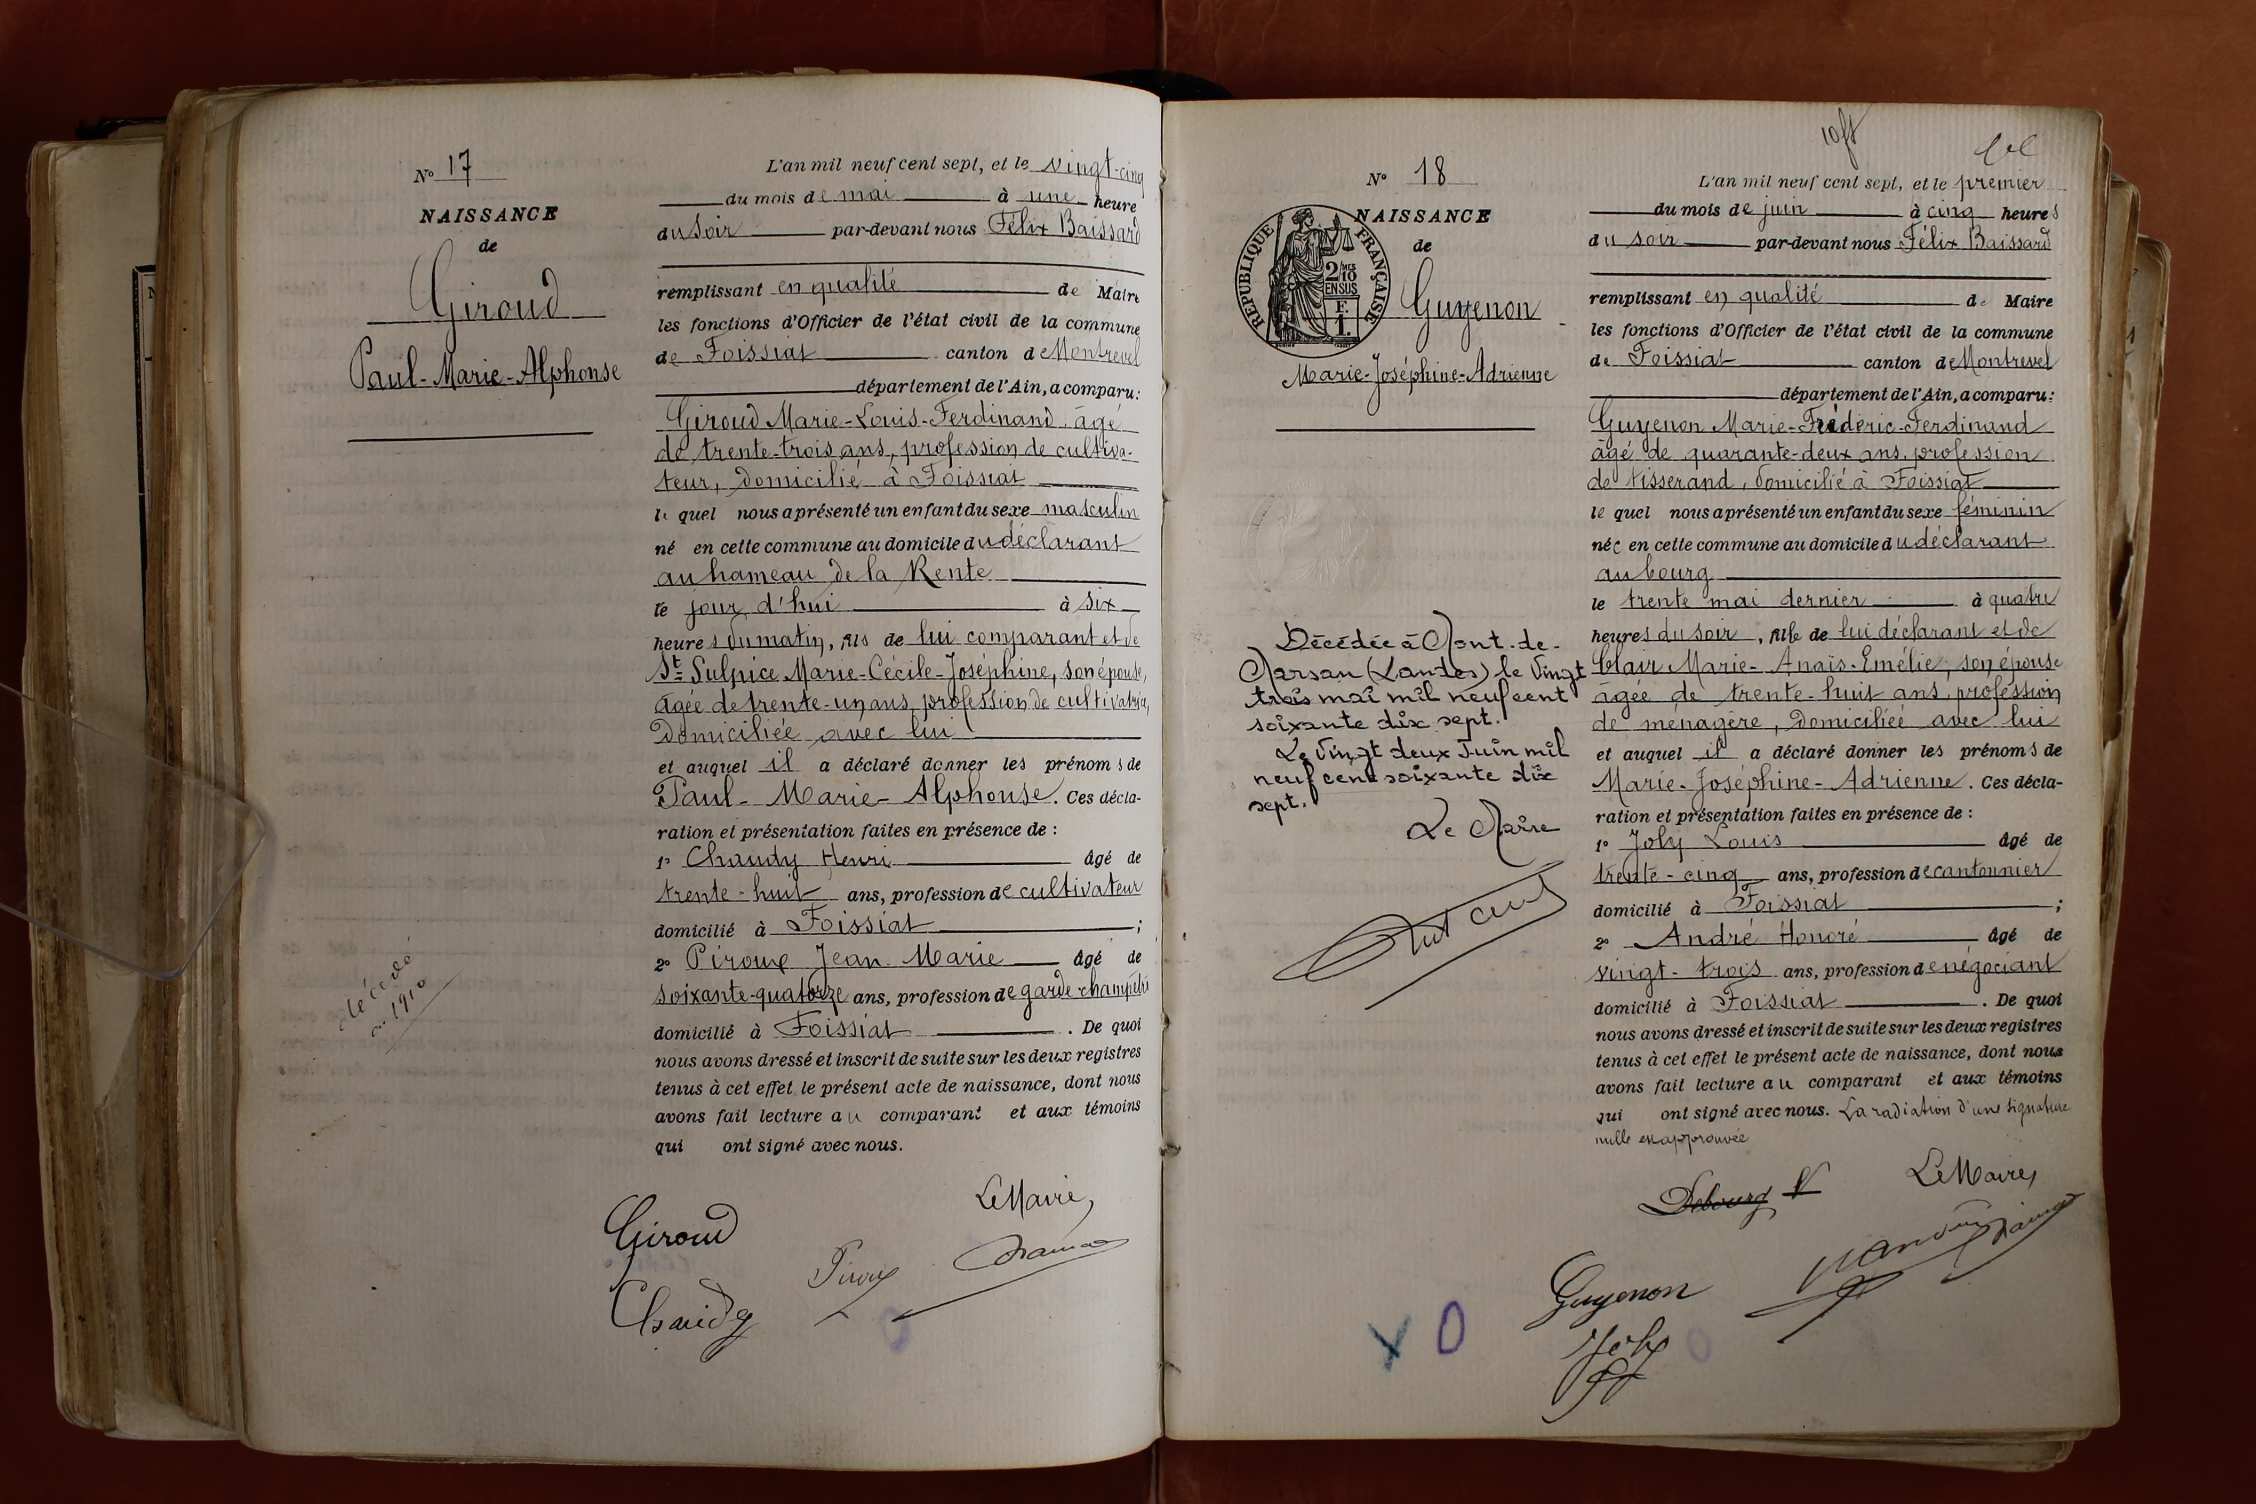 No 17
NAISSANCE
de
Giroud
Paul-Marie-Alphonse
décédé
en 1910
L'an mil neuf cent sept, et le vingt-cinq
du mois de mai à une heure
du soir par-devant nous Félix Baissard
remplissant en qualité de Maire
les fonctions d'Officier de l'état civil de la commune
de Foissiat canton de Montrevel
département de l'Ain, a comparu:
Giroud Marie-Louis-Ferdinand, âgé
de trente-trois ans, profession de cultiva-
teur, domicilié à Foissiat
le quel nous a présenté un enfant du sexe masculin
né en cette commune au domicile du déclarant
au hameau de la Rente
le jour d'hui à six
heures du matin, fils de lui comparant et de
St Sulpice Marie-Cécile-Joséphine, son épouse,
âgée de trente-un ans, profession de cultivatrice,
domiciliée avec lui
et auquel il a déclaré donner les prénoms de
Paul-Marie-Alphonse. Ces décla-
ration et présentation faites en présence de :
1o Chaudy Henri âgé de
trente-huit ans, profession de cultivateur
domicilié à Foissiat ;
2o Piroux Jean Marie âgé de
soixante-quatorze ans, profession de garde-champêtre
domicilié à Foissiat . De quoi
nous avons dressé et inscrit de suite sur les deux registres
tenus à cet effet le présent acte de naissance, dont nous
avons fait lecture au comparant et aux témoins
qui ont signé avec nous.
Le Maire,
Giroud
Piroux
Chaudy
No 18
NAISSANCE
de
RÉPUBLIQUE FRANÇAISE
2/10 MES
EN SUS
F.
1.
Guyenon
Marie-Joséphine-Adrienne
Décédée à Mont-de-
Marsan (Landes) le vingt
trois mai mil neuf cent
soixante dix sept.
Le vingt deux Juin mil
neuf cent soixante dix
sept.
Le Maire
L'an mil neuf cent sept, et le premier
du mois de juin à cinq heures
du soir par-devant nous Félix Baissard
remplissant en qualité de Maire
les fonctions d'Officier de l'état civil de la commune
de Foissiat canton de Montrevel
département de l'Ain, a comparu:
Guyenon Marie-Fréderic-Ferdinand
âgé de quarante-deux ans, profession
de tisserand, domicilié à Foissiat
le quel nous a présenté un enfant du sexe féminin
née en cette commune au domicile du déclarant
au bourg
le trente mai dernier à quatre
heures du soir, fille de lui déclarant et de
Clair Marie-Anaïs-Emélie, son épouse
âgée de trente-huit ans, profession
de ménagère, domiciliée avec lui
et auquel il a déclaré donner les prénoms de
Marie-Joséphine-Adrienne. Ces décla-
ration et présentation faites en présence de :
1o Joly Louis âgé de
trente-cinq ans, profession de cantonnier
domicilié à Foissiat ;
2o André Honoré âgé de
vingt-trois ans, profession de négociant
domicilié à Foissiat . De quoi
nous avons dressé et inscrit de suite sur les deux registres
tenus à cet effet le présent acte de naissance, dont nous
avons fait lecture au comparant et aux témoins
qui ont signé avec nous. La radiation d'une signature
nulle est approuvée
Debourg V
Le Maire,
Guyenon
Joly
X O